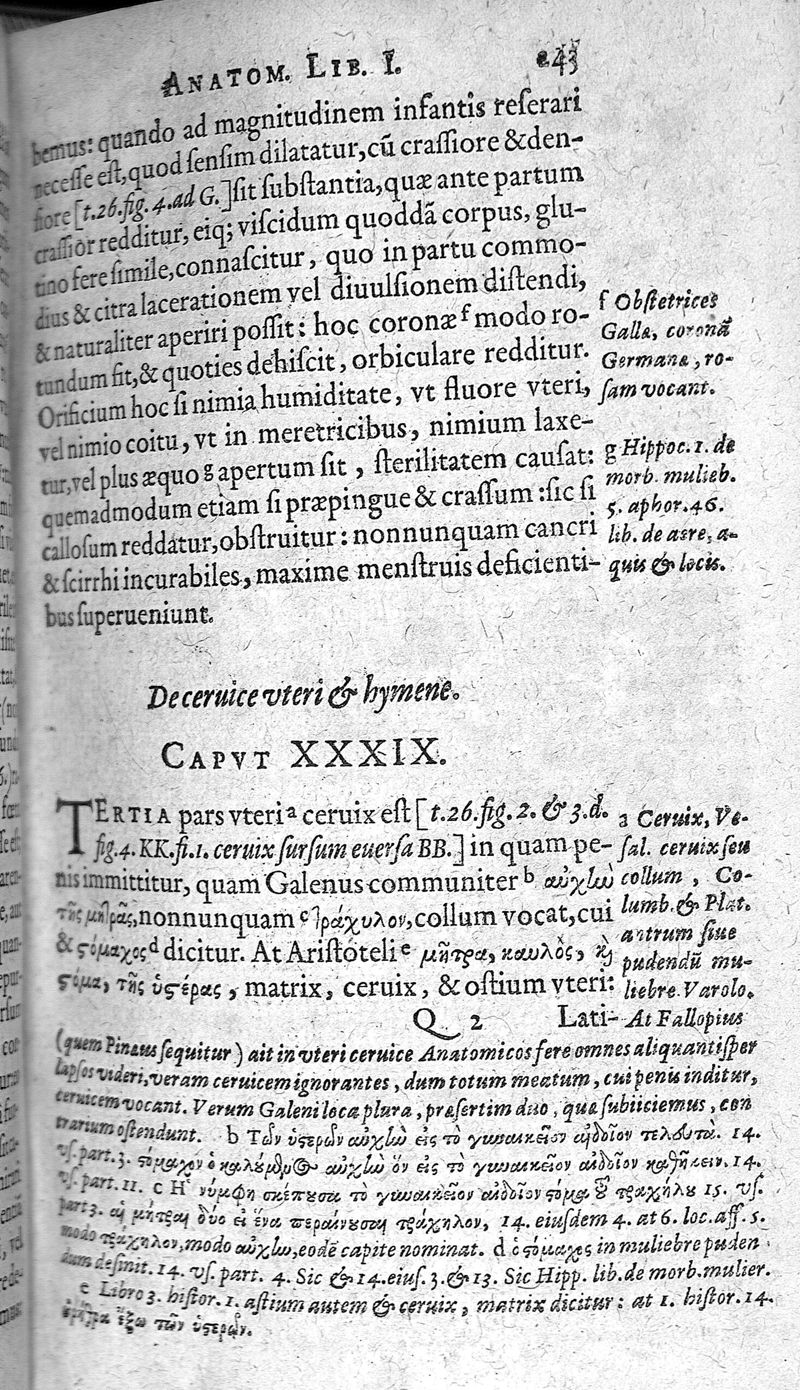 ANATOM. LIB. I. 243
bemus: quando ad magnitudinem infantis reserari
necesse est, quod sensim dilatatur, cū crassiore & den-
siore [t.26.fig. 4.ad G.] sit substantia, quæ ante partum
crassior redditur, eiq; viscidum quoddā corpus, glu-
tino fere simile, connascitur, quo in partu commo-
dius & citra lacerationem vel diuulsionem distendi,
& naturaliter aperiri possit: hoc coronæ f modo ro-
tundum fit, & quoties dehiscit, orbiculare redditur.
Orificium hoc si nimia humiditate, vt fluore vteri,
vel nimio coitu, vt in meretricibus, nimium laxe-
tur, vel plus æquo g apertum sit, sterilitatem causat:
quemadmodum etiam si præpingue & crassum: sic si
callosum reddatur, obstruitur: nonnunquam cancri
& scirrhi incurabiles, maxime menstruis deficienti-
bus superueniunt.
f Obstetrices
Gallæ, coronā
Germanæ, ro-
sam vocant.
g Hippoc. 1. de
morb. mulieb.
5. aphor. 46.
lib. de aere, a-
quis & locis.
De ceruice vteri & hymene.
CAPVT XXXIX.
TERTIA pars vteri a ceruix est [t.26.fig. 2. & 3.d.
fig.4. KK.fi.1. ceruix sursum euersa BB.] in quam pe-
nis immittitur, quam Galenus communiter b αὐχένα
τῆς μήτρας, nonnunquam c τράχηλον, collum vocat, cui
& στόμαχος d dicitur. At Aristoteli e μήτρα, καυλὸς, καὶ
στόμα, τῆς ὑστέρας, matrix, ceruix, & ostium vteri:
Q 2 Lati-
a Ceruix, Ve-
sal. ceruix seu
collum, Co-
lumb. & Plat.
antrum siue
pudendū mu-
liebre Varolo.
At Fallopius
(quem Pinæus sequitur) ait in vteri ceruice Anatomicos fere omnes aliquantisper
lapsos videri, veram ceruicem ignorantes, dum totum meatum, cui penis inditur,
ceruicem vocant. Verum Galeni loca plura, præsertim duo, quæ subiiciemus, con
trarium ostendunt. b Τῶν ὑστερῶν εἰς τὸ γυναικεῖον αἰδοῖον τελευτᾷ. 14.
vs. part. 3. στόμαχον ὁ καλούμενος αὐχὴν εἰς τὸ γυναικεῖον αἰδοῖον καθῆκεν. 14.
vs. part. 11. c Ἡ νύμφη σκέπουσα τὸ γυναικεῖον αἰδοῖον στόμα τοῦ τραχήλου 15. vs.
part 3. αἱ μήτραι δύο εἰ ἕνα περαίνουσαι τράχηλον, 14. eiusdem 4. at 6. loc. aff. 5.
modo τράχηλον, modo αὐχένα, eodē capite nominat. d ὁ στόμαχος in muliebre puden
dum desinit. 14. vs. part. 4. Sic & 14. eius. 3. & 13. Sic Hipp. lib. de morb. mulier.
e Libro 3. histor. 1. astium autem & ceruix, matrix dicitur: at 1. histor. 14.
ἔξω τῶν ὑστερῶν.